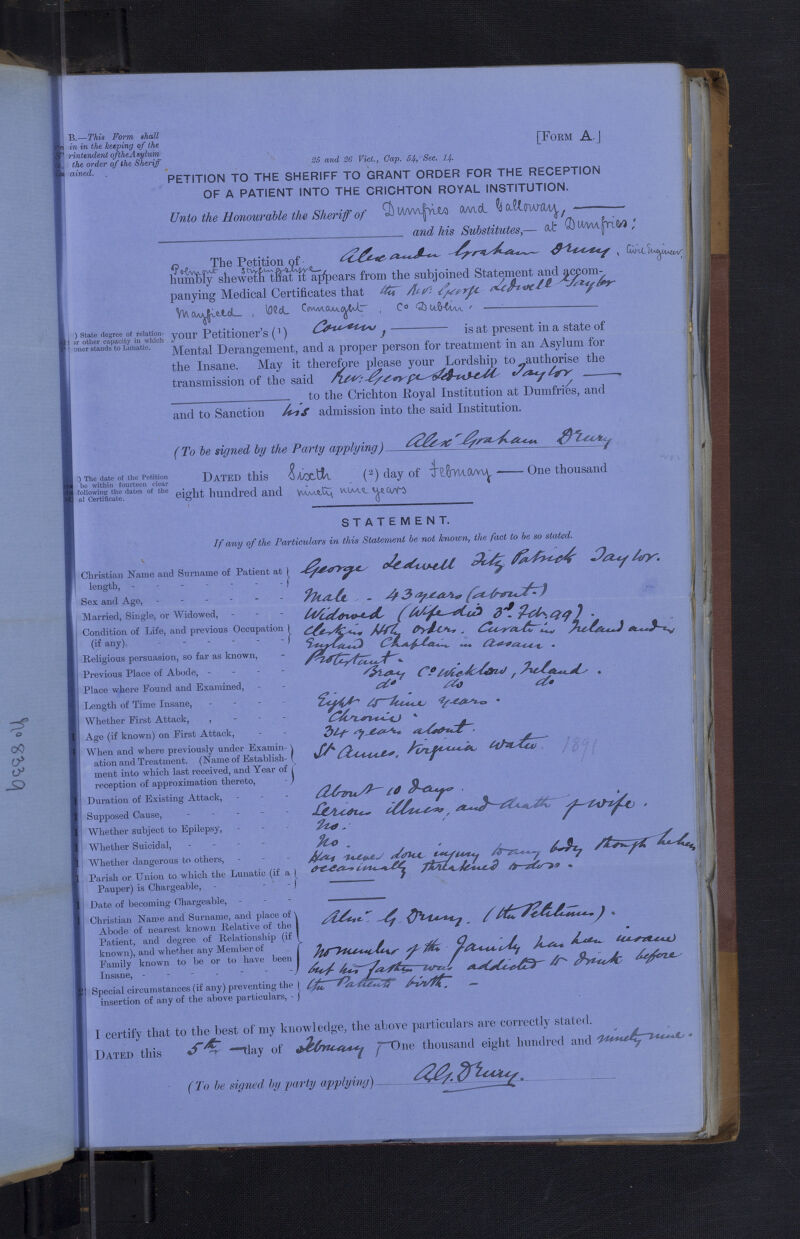 B.—This Form shall
in in the keeping of the
rintendent of the Asylum
the order of the Sheriff
ained.
[FORM A.]
25 and 26 Vict., Cap. 54, Sec. 14.
PETITION TO THE SHERIFF TO GRANT ORDER FOR THE RECEPTION
OF A PATIENT INTO THE CRICHTON ROYAL INSTITUTION.
Unto the Honourable the Sheriff of Dumfries and Galloway,
and his Substitutes,— at Dumfries;
The Petition of Alexander Graham Drury, Civil Engineer,
Polmont Stirlingshire
humbly sheweth that it appears from the subjoined Statement and accom-
panying Medical Certificates that the Rev: George Ledwell Taylor
Mayfield, Old Connaught, Co Dublin,
) State degree of relation-
or other capacity in which
oner stands to Lunatic.
your Petitioner's (1) Cousin, is at present in a state of
Mental Derangement, and a proper person for treatment in an Asylum for
the Insane. May it therefore please your Lordship to authorise the
transmission of the said Rev: George Ledwell Taylor
to the Crichton Royal Institution at Dumfries, and
and to Sanction his admission into the said Institution.
(To be signed by the Party applying) Alexr Graham Drury
) The date of the Petition
be within fourteen clear
following the dates of the
al Certificate.
DATED this Sixth (2) day of February — One thousand
eight hundred and ninety nine years
STATEMENT.
If any of the Particulars in this Statement be not known, the fact to be so stated.
Christian Name and Surname of Patient at length, - George Ledwell Fitz Patrick Taylor.
Sex and Age, - Male - 43 years (about-)
Married, Single, or Widowed, - Widowed (Wife died 3d. Feb. 99).
Condition of Life, and previous Occupation (if any). Clerk in Holy orders. Curate in Ireland and in
England Chaplain in Assam.
Religious persuasion, so far as known, - Protestant -
Previous Place of Abode, - Bray Co Wicklow, Ireland.
Place where Found and Examined, - do do do
Length of Time Insane, - Eight to nine years.
Whether First Attack, - Chronic.
Age (if known) on First Attack, - 34 years about.
When and where previously under Examin-
ation and Treatment. (Name of Establish-
ment into which last received, and Year of
reception of approximation thereto, - St Annes, Virginia Water. 1891
Duration of Existing Attack, - About 10 days.
Supposed Cause, - Serious illness, and death of wife.
Whether subject to Epilepsy, - No.
Whether Suicidal, - No.
Whether dangerous to others, - Has never done injury to any body though he has
occasionally threatened to do so.
Parish or Union to which the Lunatic (if a
Pauper) is Chargeable, -
Date of becoming Chargeable, -
Christian Name and Surname, and place of
Abode of nearest known Relative of the
Patient, and degree of Relationship (if
known), and whether any Member of
Family known to be or to have been
Insane, -
Alexr G Drury. (the Petitioner).
No member of the family has been insane
but his father was addicted to drink before
the Patients birth. -
Special circumstances (if any) preventing the
insertion of any of the above particulars, -
I certify that to the best of my knowledge, the above particulars are correctly stated.
DATED this 5th day of February, One thousand eight hundred and ninety nine.
(To be signed by party applying) A.G. Drury.
No 8339